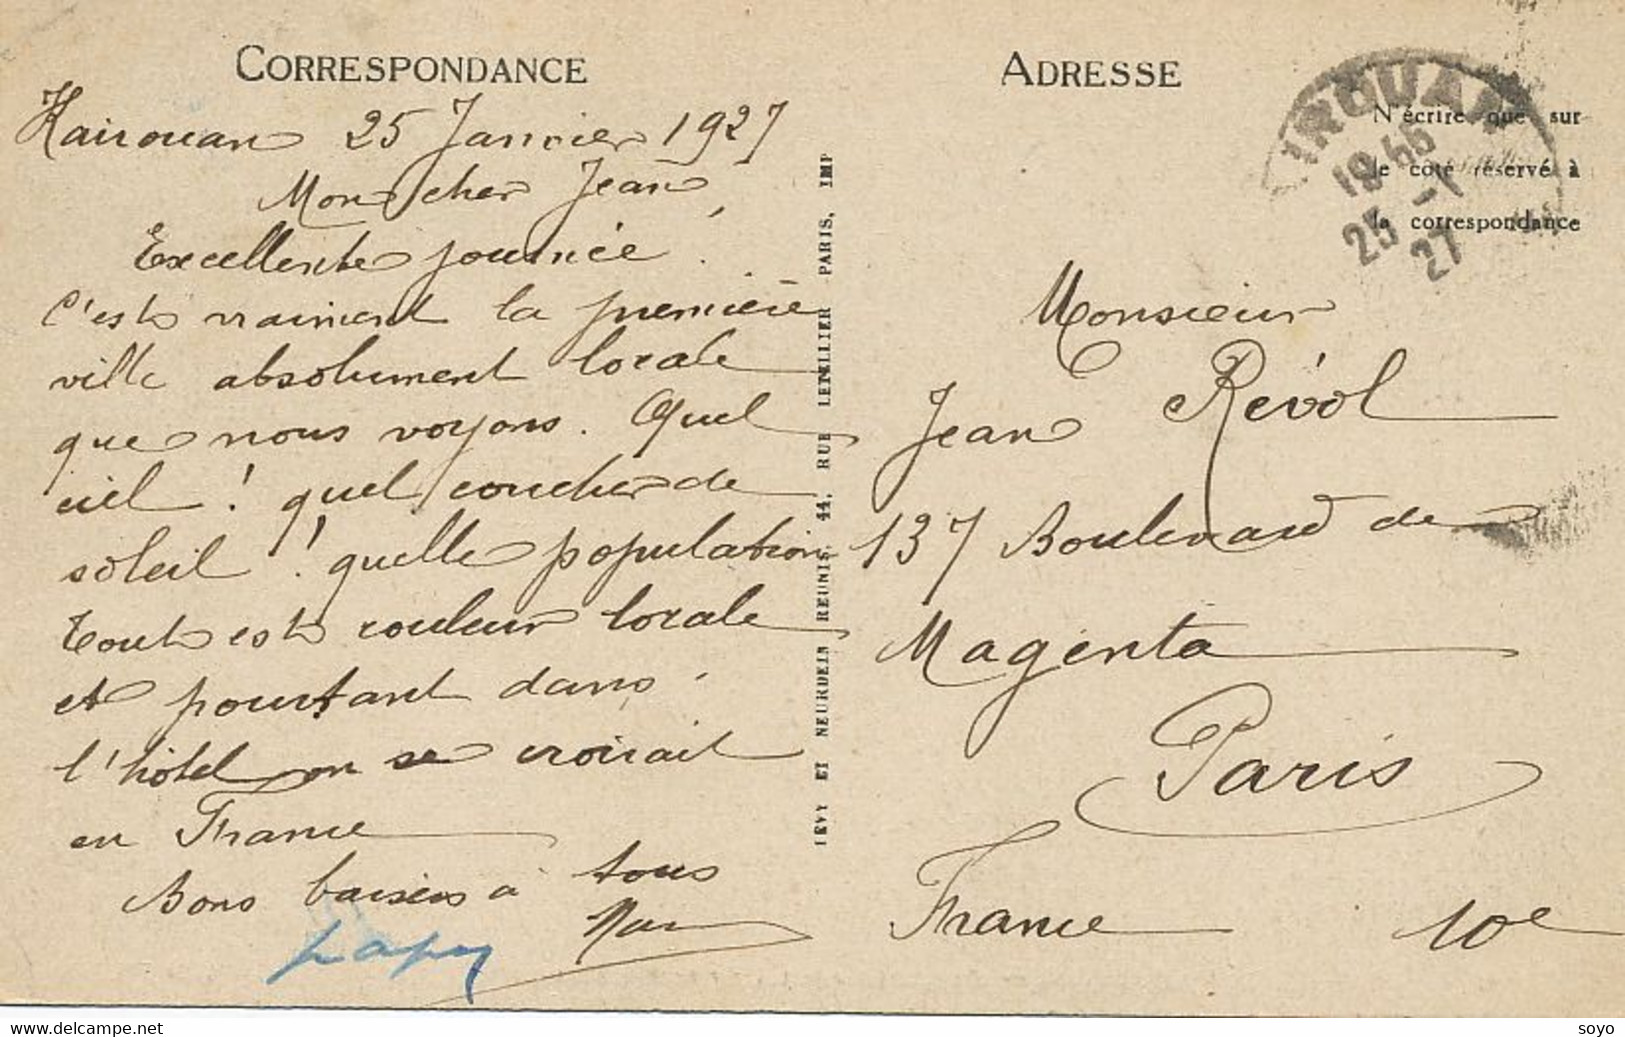 CORRESPONDANCE
Kairouan 25 Janvier 1927
Mon cher Jean,
Excellente journée !
C'est vraiment la première
ville absolument locale
que nous voyons. Quel
ciel ! quel coucher de
soleil ! quelle population
tout est couleur locale
et pourtant dans
l'hôtel on se croirait
en France
Bons baisers à tous
papy
LÉVY ET NEURDEIN RÉUNIS, 44, RUE LETELLIER PARIS, IMP
ADRESSE
N'écrire que sur
le côté réservé à
la correspondance
IROUAN
25 -1
27
Monsieur
Jean Révol
137 Boulevard de
Magenta
Paris
France 10e
delcampe.net
soyo